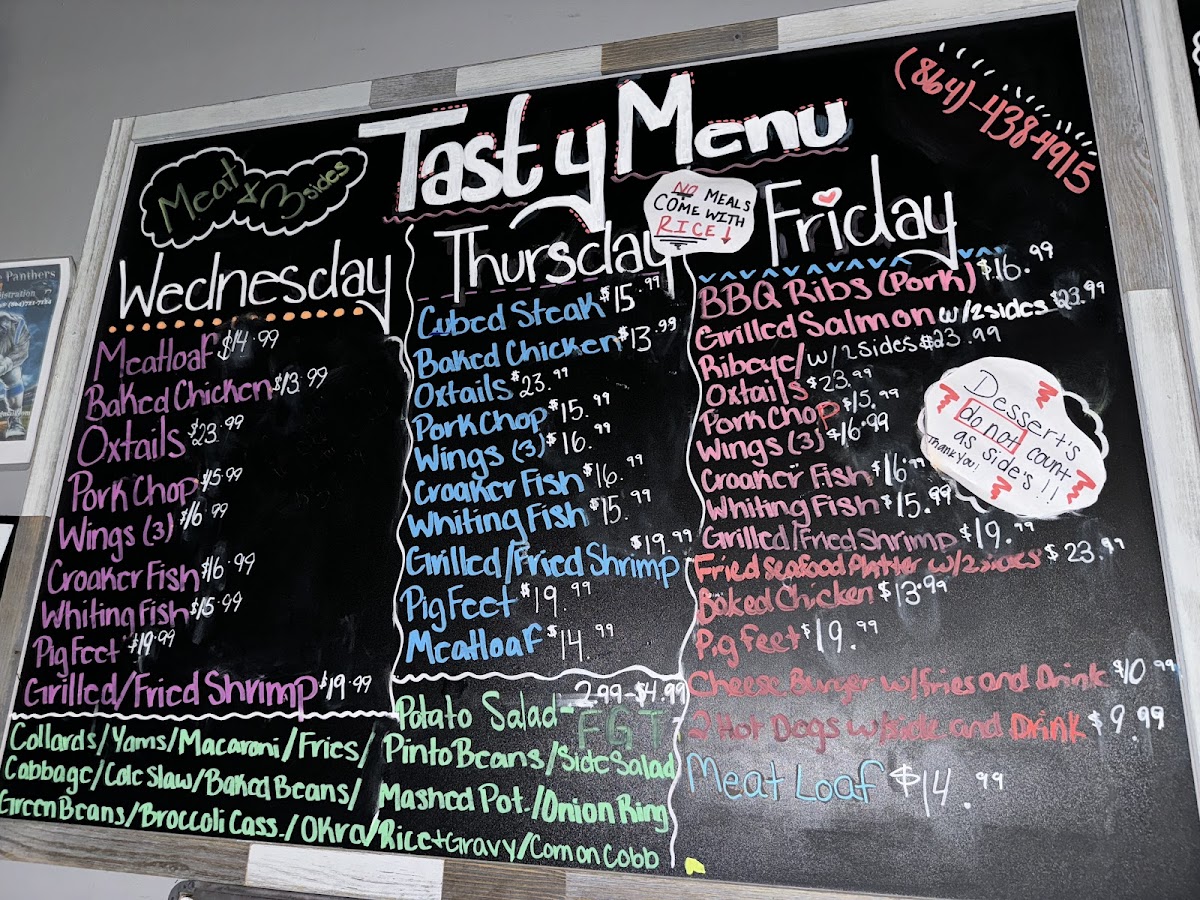 Tasty Menu
(864)-438-4915
Meat & 3 sides
NO MEALS
COME WITH
RICE↓
Wednesday
Meatloaf $14.99
Baked Chicken $13.99
Oxtails $23.99
Pork Chop $15.99
Wings (3) $16.99
Croaker Fish $16.99
Whiting Fish $15.99
Pig Feet $19.99
Grilled/Fried Shrimp $19.99
Collards/Yams/Macaroni/Fries/
Cabbage/Cole Slaw/Baked Beans/
Green Beans/Broccoli Cass./Okra/
Thursday
Cubed Steak $15.99
Baked Chicken $13.99
Oxtails $23.99
Pork Chop $15.99
Wings (3) $16.99
Croaker Fish $16.99
Whiting Fish $15.99
Grilled/Fried Shrimp $19.99
Pig Feet $19.99
Meatloaf $14.99
Potato Salad - 2.99 - $4.99
FGT
Pinto Beans/Side Salad
Mashed Pot./Onion Ring
Rice+Gravy/Corn on Cobb
Friday
BBQ Ribs (Pork) $16.99
Grilled Salmon w/2sides $23.99
Ribeye/w/2sides $23.99
Oxtails $23.99
Pork Chop $15.99
Wings (3) $16.99
Croaker Fish $16.99
Whiting Fish $15.99
Grilled/Fried Shrimp $19.99
Fried Seafood Platter w/2sides $23.99
Baked Chicken $13.99
Pig Feet $19.99
Cheese Burger w/fries and Drink $10.99
2 Hot Dogs w/side and DRINK $9.99
Meat Loaf $14.99
Dessert's
do not count
as side's !!
Thank you!
Panthers